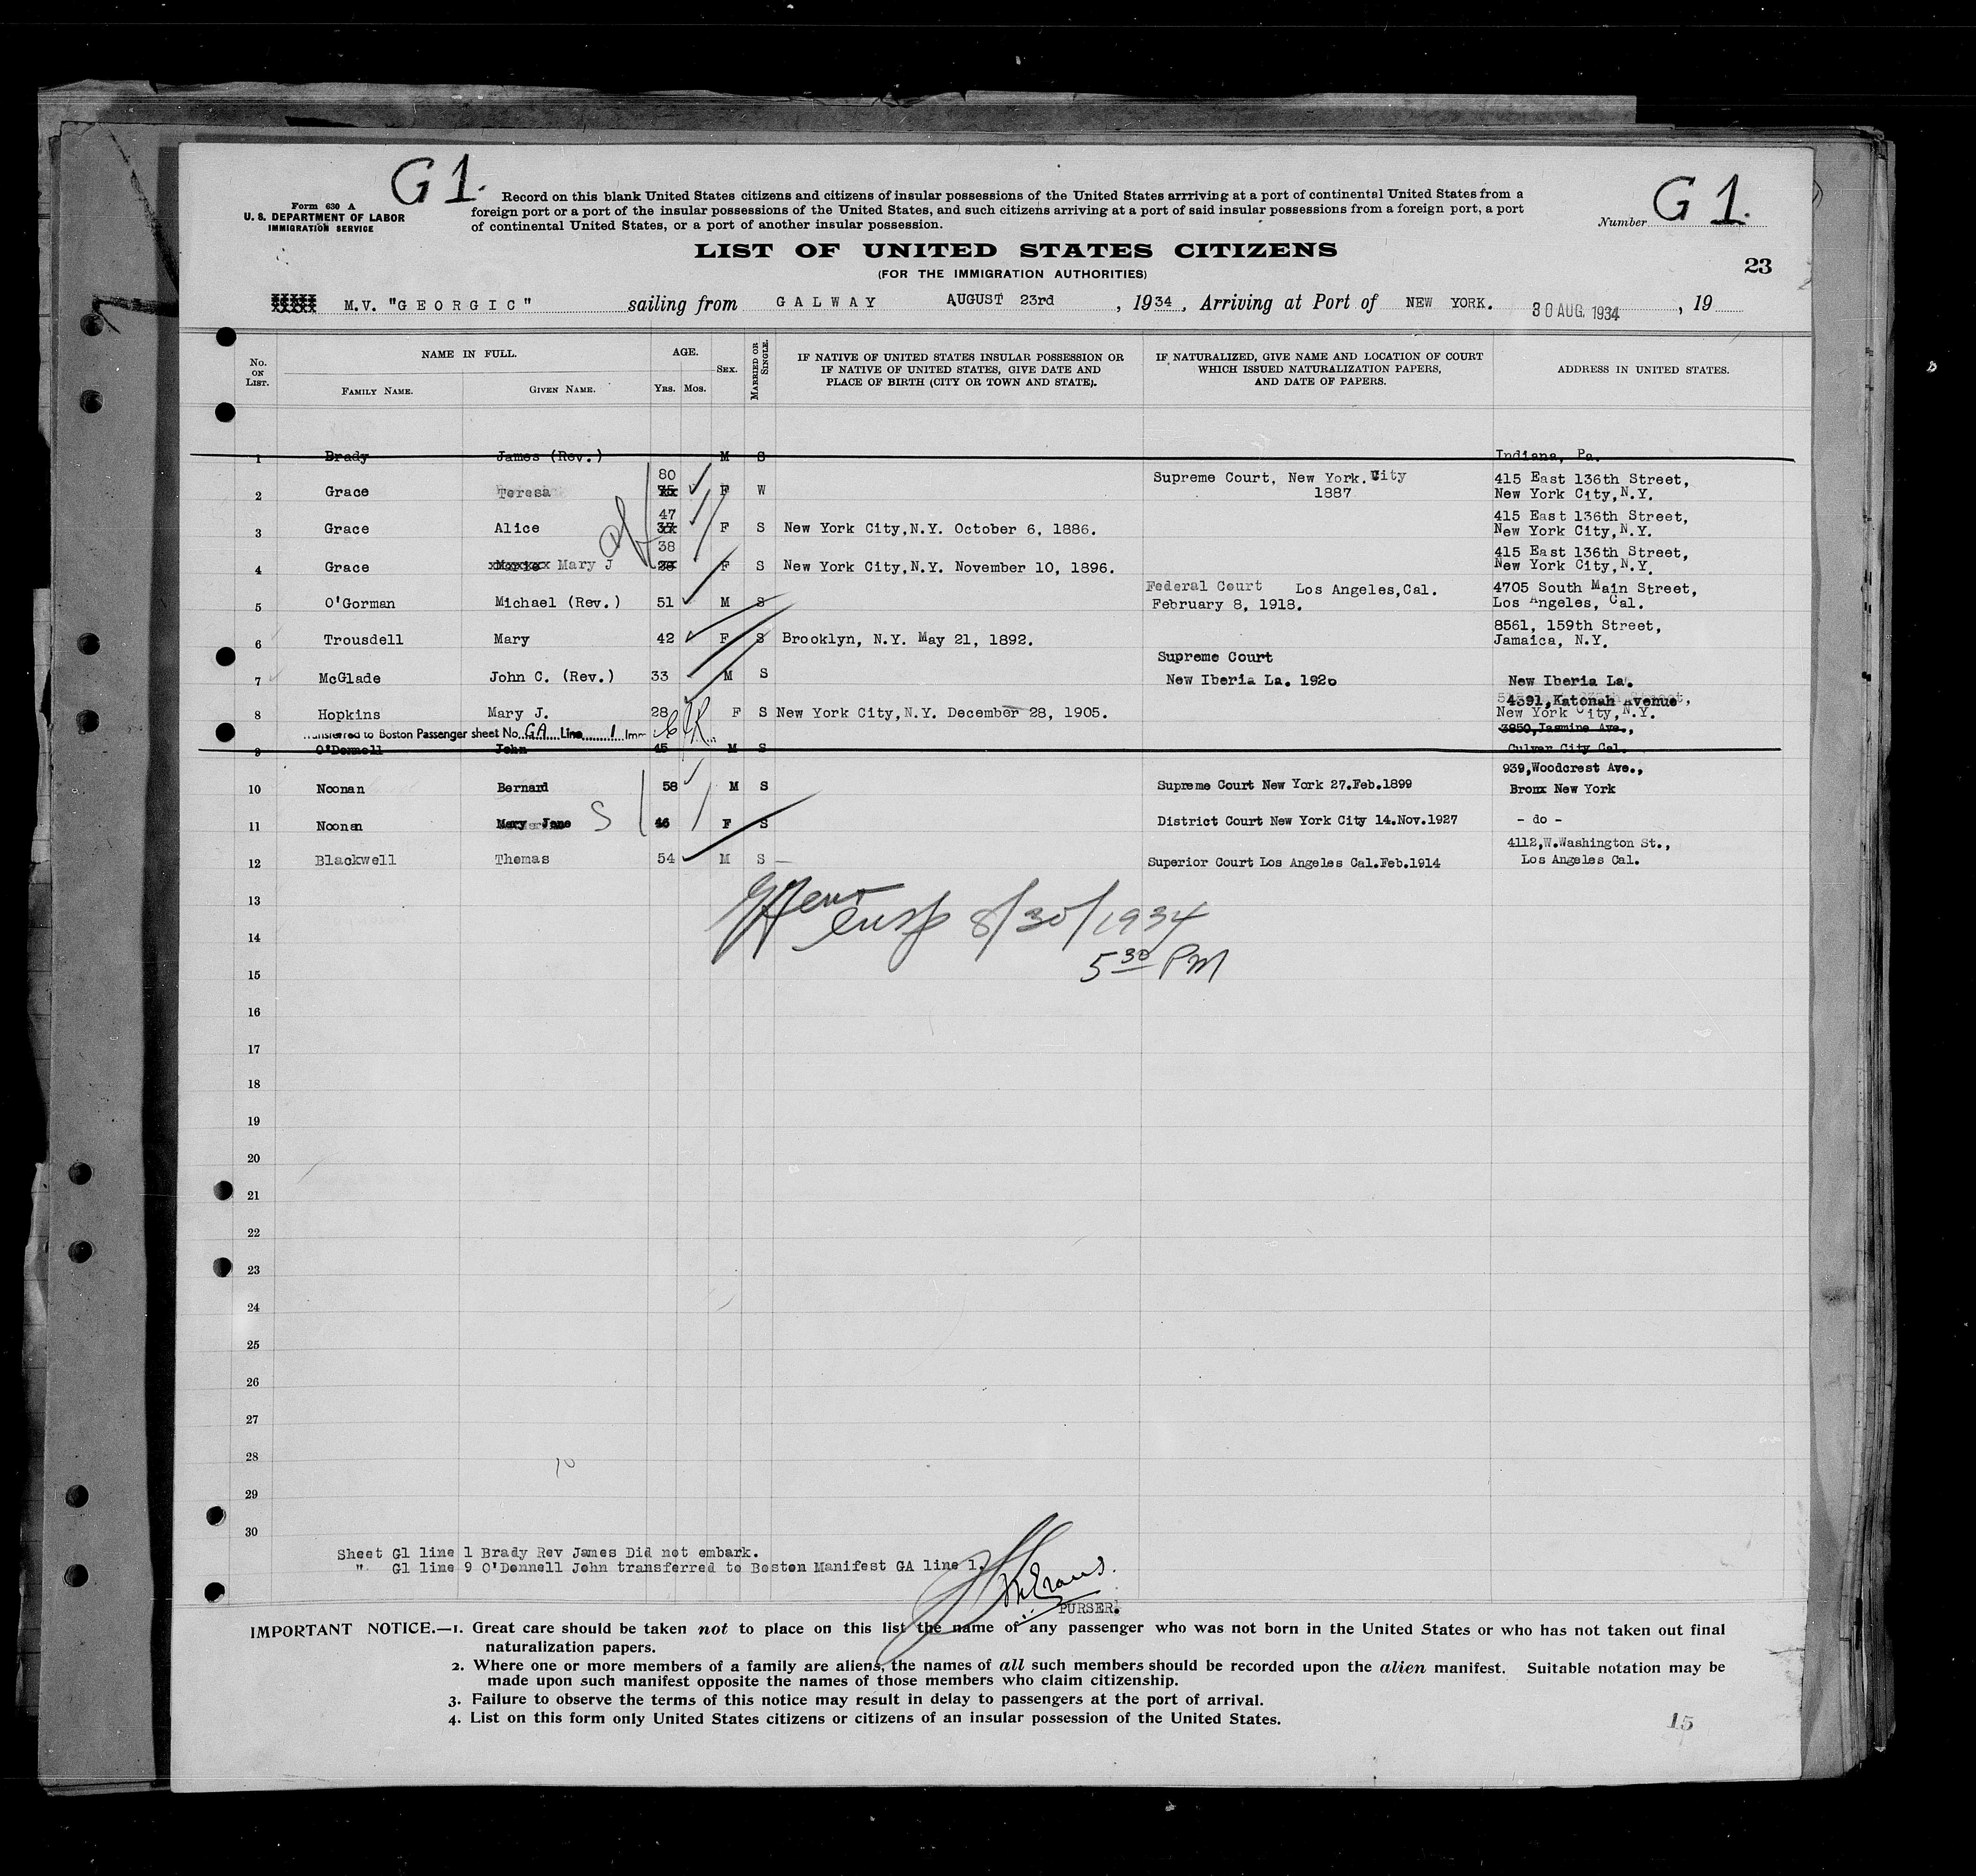 G1.
Form 630 A
U. S. DEPARTMENT OF LABOR
IMMIGRATION SERVICE
Record on this blank United States citizens and citizens of insular possessions of the United States arrriving at a port of continental United States from a
foreign port or a port of the insular possessions of the United States, and such citizens arriving at a port of said insular possessions from a foreign port, a port
of continental United States, or a port of another insular possession.
Number G 1.
LIST OF UNITED STATES CITIZENS
(FOR THE IMMIGRATION AUTHORITIES)
23
M.V. "GEORGIC" sailing from GALWAY AUGUST 23rd , 1934, Arriving at Port of NEW YORK. 30 AUG. 1934 , 19
No. ON LIST. NAME IN FULL. AGE. SEX. MARRIED OR SINGLE. IF NATIVE OF UNITED STATES INSULAR POSSESSION OR IF NATIVE OF UNITED STATES, GIVE DATE AND PLACE OF BIRTH (CITY OR TOWN AND STATE). IF NATURALIZED, GIVE NAME AND LOCATION OF COURT WHICH ISSUED NATURALIZATION PAPERS, AND DATE OF PAPERS. ADDRESS IN UNITED STATES.
FAMILY NAME. GIVEN NAME. YRS. MOS.
1 Brady James (Rev.) M S Indiana, Pa.
2 Grace Teresa 80 F W Supreme Court, New York. City 1887 415 East 136th Street, New York City, N.Y.
3 Grace Alice 47 F S New York City, N.Y. October 6, 1886. 415 East 136th Street, New York City, N.Y.
4 Grace Mary J 38 F S New York City, N.Y. November 10, 1896. 415 East 136th Street, New York City, N.Y.
5 O'Gorman Michael (Rev.) 51 M S Federal Court Los Angeles, Cal. February 8, 1918. 4705 South Main Street, Los Angeles, Cal.
6 Trousdell Mary 42 F S Brooklyn, N.Y. May 21, 1892. 8561, 159th Street, Jamaica, N.Y.
7 McGlade John C. (Rev.) 33 M S Supreme Court New Iberia La. 1920 New Iberia La.
8 Hopkins Mary J. 28 F S New York City, N.Y. December 28, 1905. 4391, Katonah Avenue New York City, N.Y.
Transferred to Boston Passenger sheet No. GA Line 1 Imm
9 O'Donnell John 45 M S 3850, Jasmine Ave., Culver City Cal.
10 Noonan Bernard 58 M S Supreme Court New York 27.Feb.1899 939, Woodcrest Ave., Bronx New York
11 Noonan Mary Jane S 46 F S District Court New York City 14.Nov.1927 - do -
12 Blackwell Thomas 54 M S Superior Court Los Angeles Cal. Feb.1914 4112, W. Washington St., Los Angeles Cal.
13
insp 8/30/1934
14
5 30 PM
15
16
17
18
19
20
21
22
23
24
25
26
27
28
29
30
Sheet G1 line 1 Brady Rev James Did not embark.
" G1 line 9 O'Donnell John transferred to Boston Manifest GA line 1.
Evans.
PURSER.
IMPORTANT NOTICE.—1. Great care should be taken not to place on this list the name of any passenger who was not born in the United States or who has not taken out final
naturalization papers.
2. Where one or more members of a family are aliens, the names of all such members should be recorded upon the alien manifest. Suitable notation may be
made upon such manifest opposite the names of those members who claim citizenship.
3. Failure to observe the terms of this notice may result in delay to passengers at the port of arrival.
4. List on this form only United States citizens or citizens of an insular possession of the United States.
15